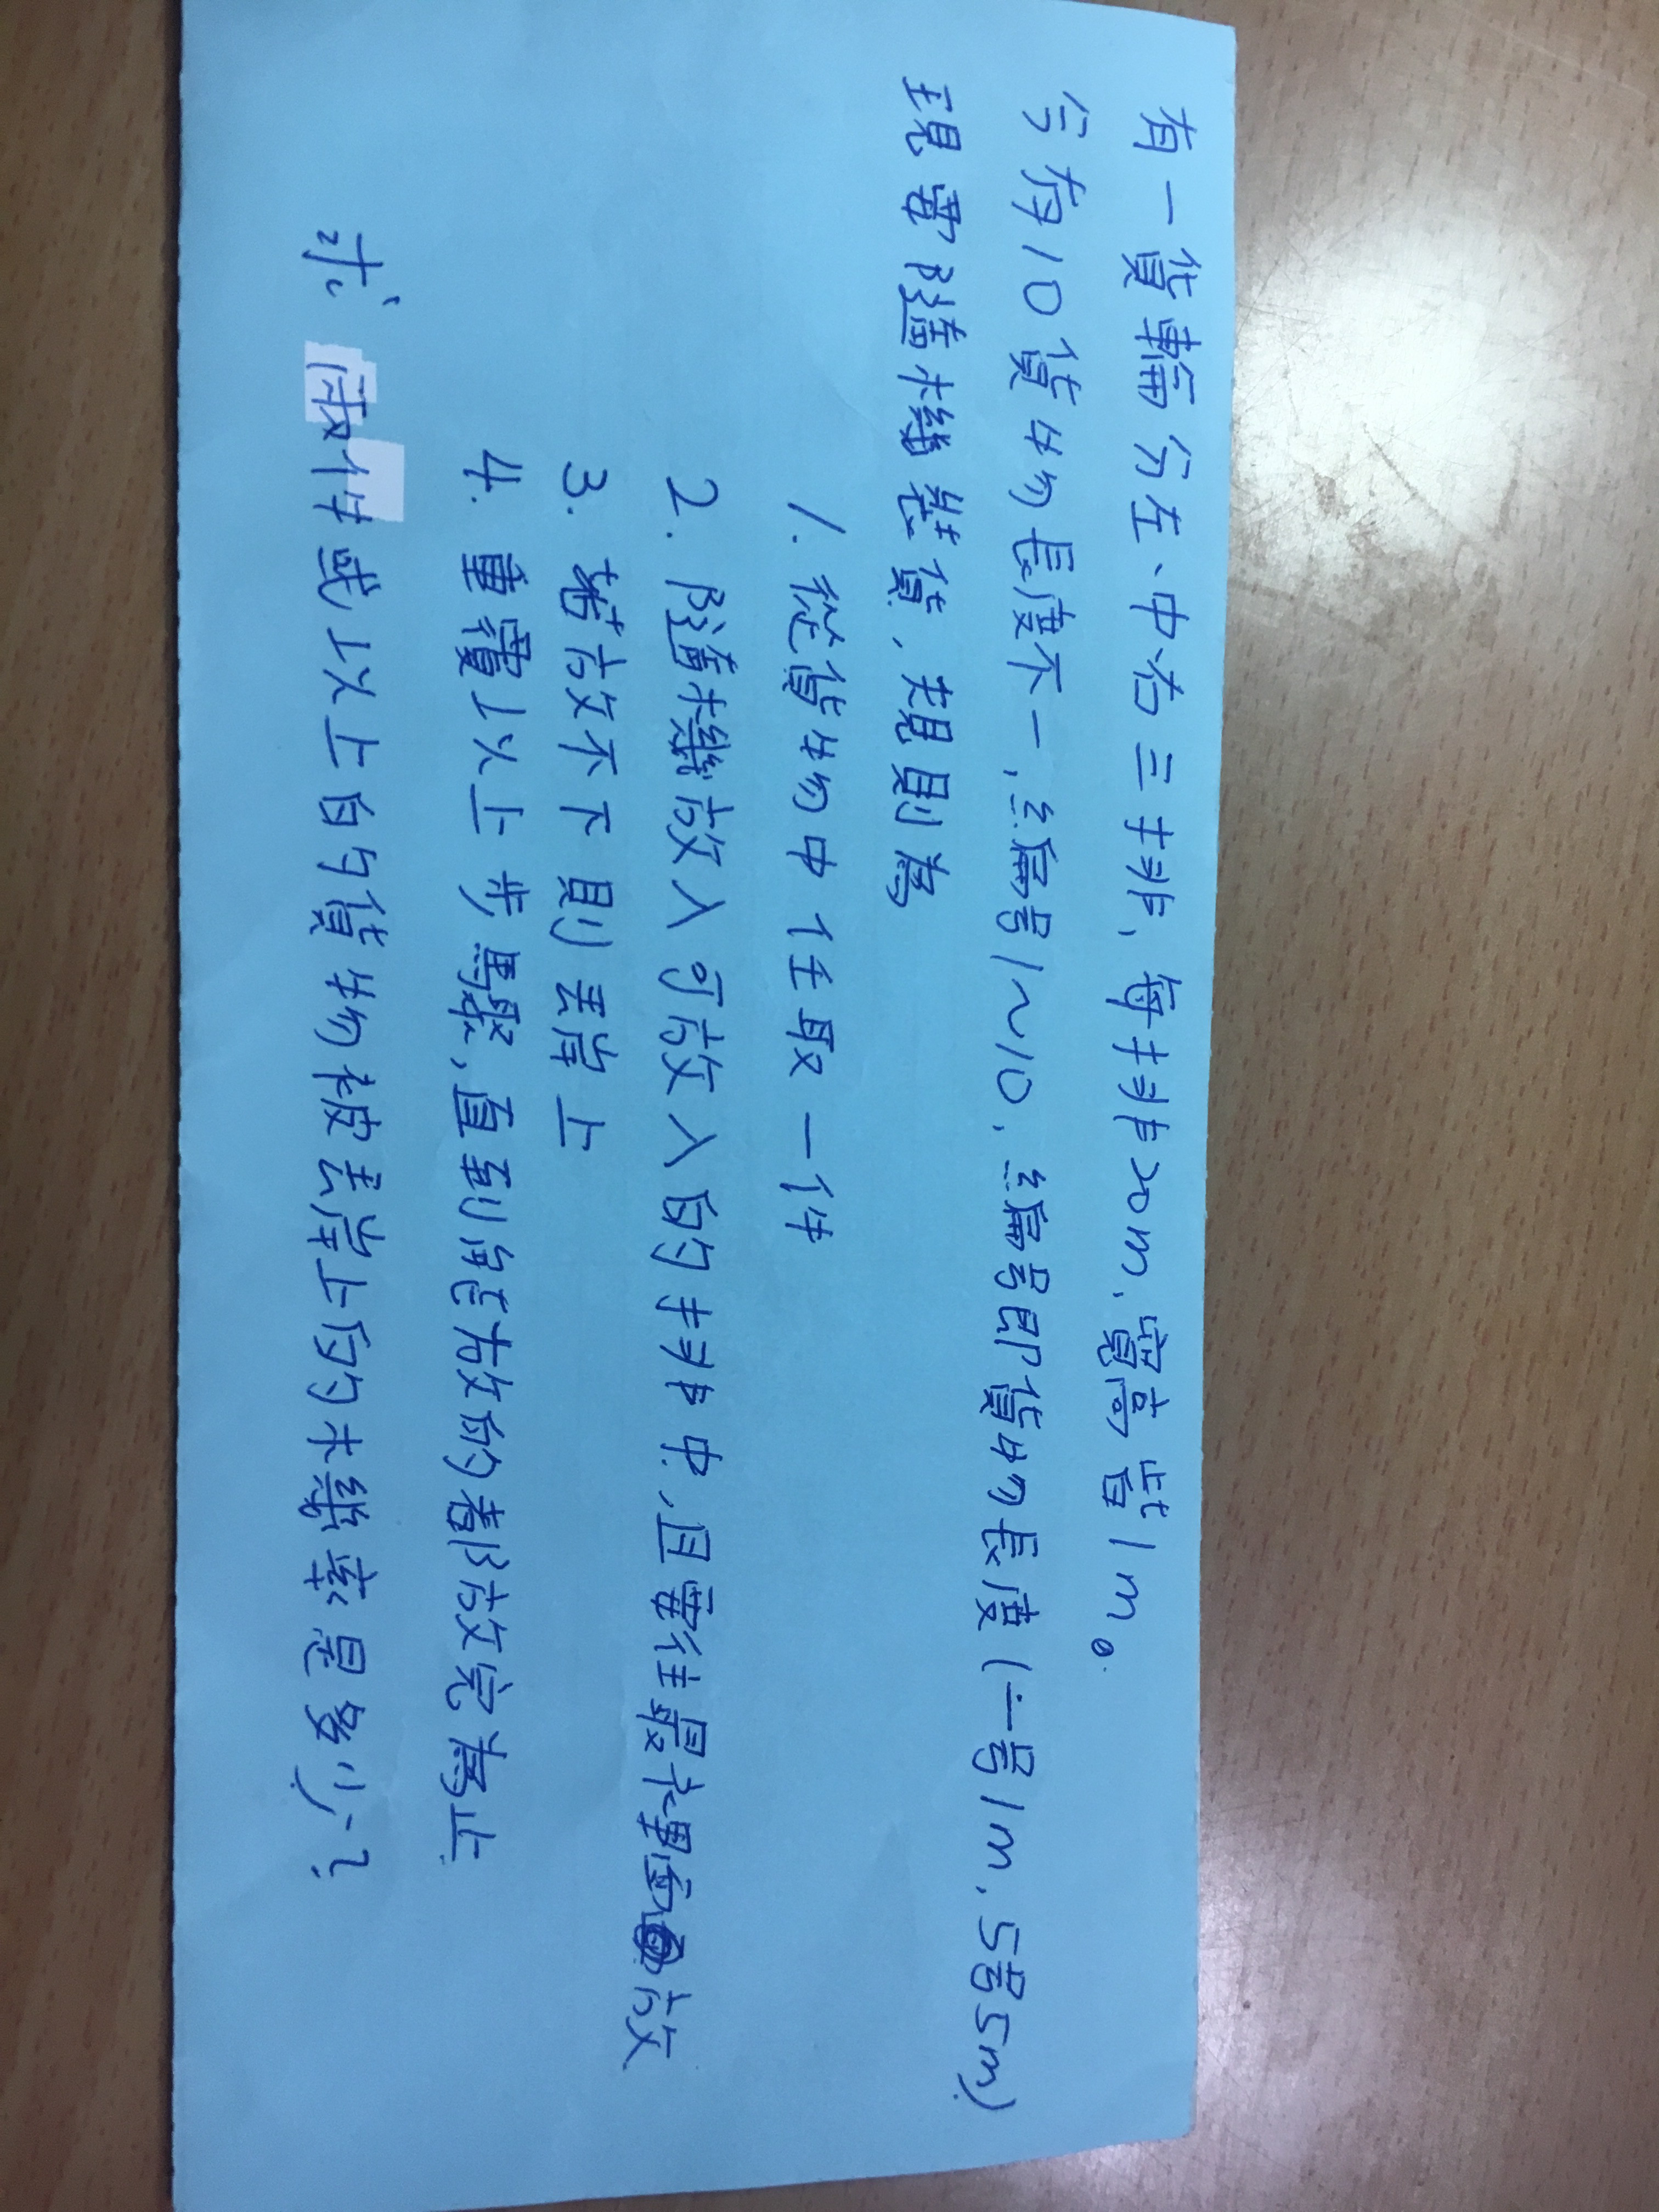 有一貨輪分左、中、右三排,每排20m,寬高皆1m。
今有10貨物長度不一,編号1~10,編号即貨物長度(一号1m,5号5m)
現需隨機裝貨,規則為
1. 從貨物中任取一件
2. 隨機放入可放入的排中,且需往最裏面放
3. 若放不下則丟岸上
4. 重覆以上步驟,直到能放的都放完為止
求 兩件或以上的貨物被丟岸上的機率是多少?